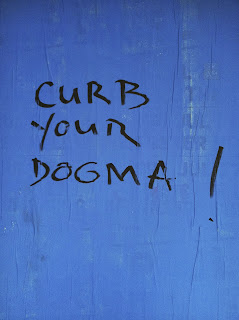 CURB
YOUR
DOGMA !